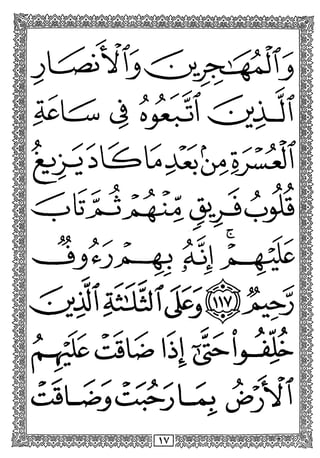 وَٱلْمُهَـٰجِرِينَ وَٱلْأَنصَارِ
ٱلَّذِينَ ٱتَّبَعُوهُ فِى سَاعَةِ
ٱلْعُسْرَةِ مِنۢ بَعْدِ مَا كَادَ يَزِيغُ
قُلُوبُ فَرِيقٍ مِّنْهُمْ ثُمَّ تَابَ
عَلَيْهِمْ ۚ إِنَّهُۥ بِهِمْ رَءُوفٌ
رَّحِيمٌ ١١٧ وَعَلَى ٱلثَّلَـٰثَةِ ٱلَّذِينَ
خُلِّفُوا۟ حَتَّىٰٓ إِذَا ضَاقَتْ عَلَيْهِمُ
ٱلْأَرْضُ بِمَا رَحُبَتْ وَضَاقَتْ
١٧